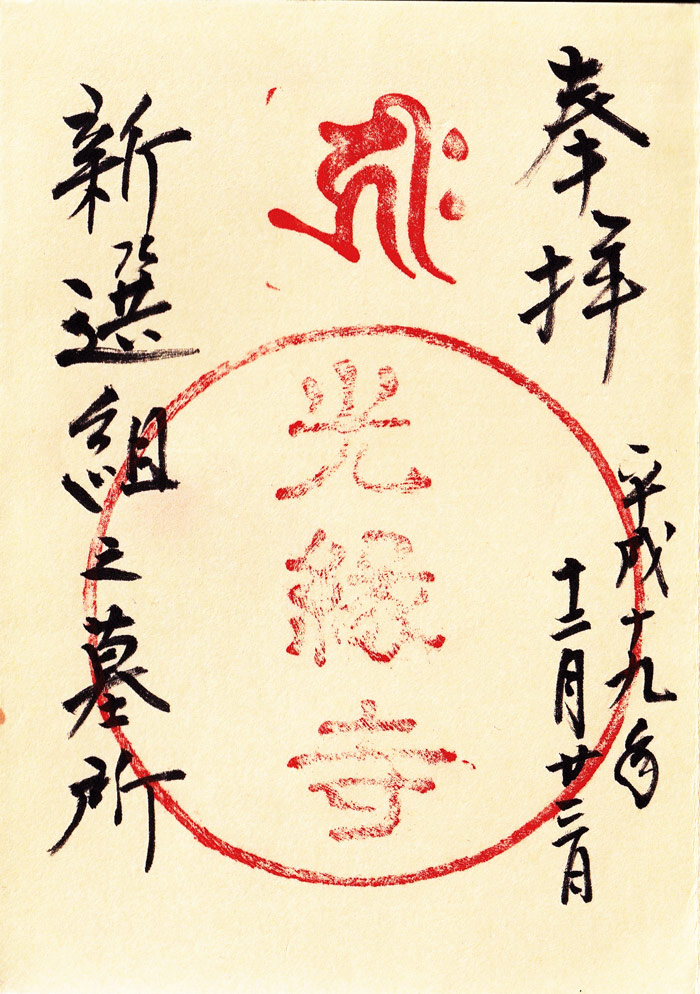 奉拝
平成十九年
十二月廿三日
光縁寺
新選組之墓所